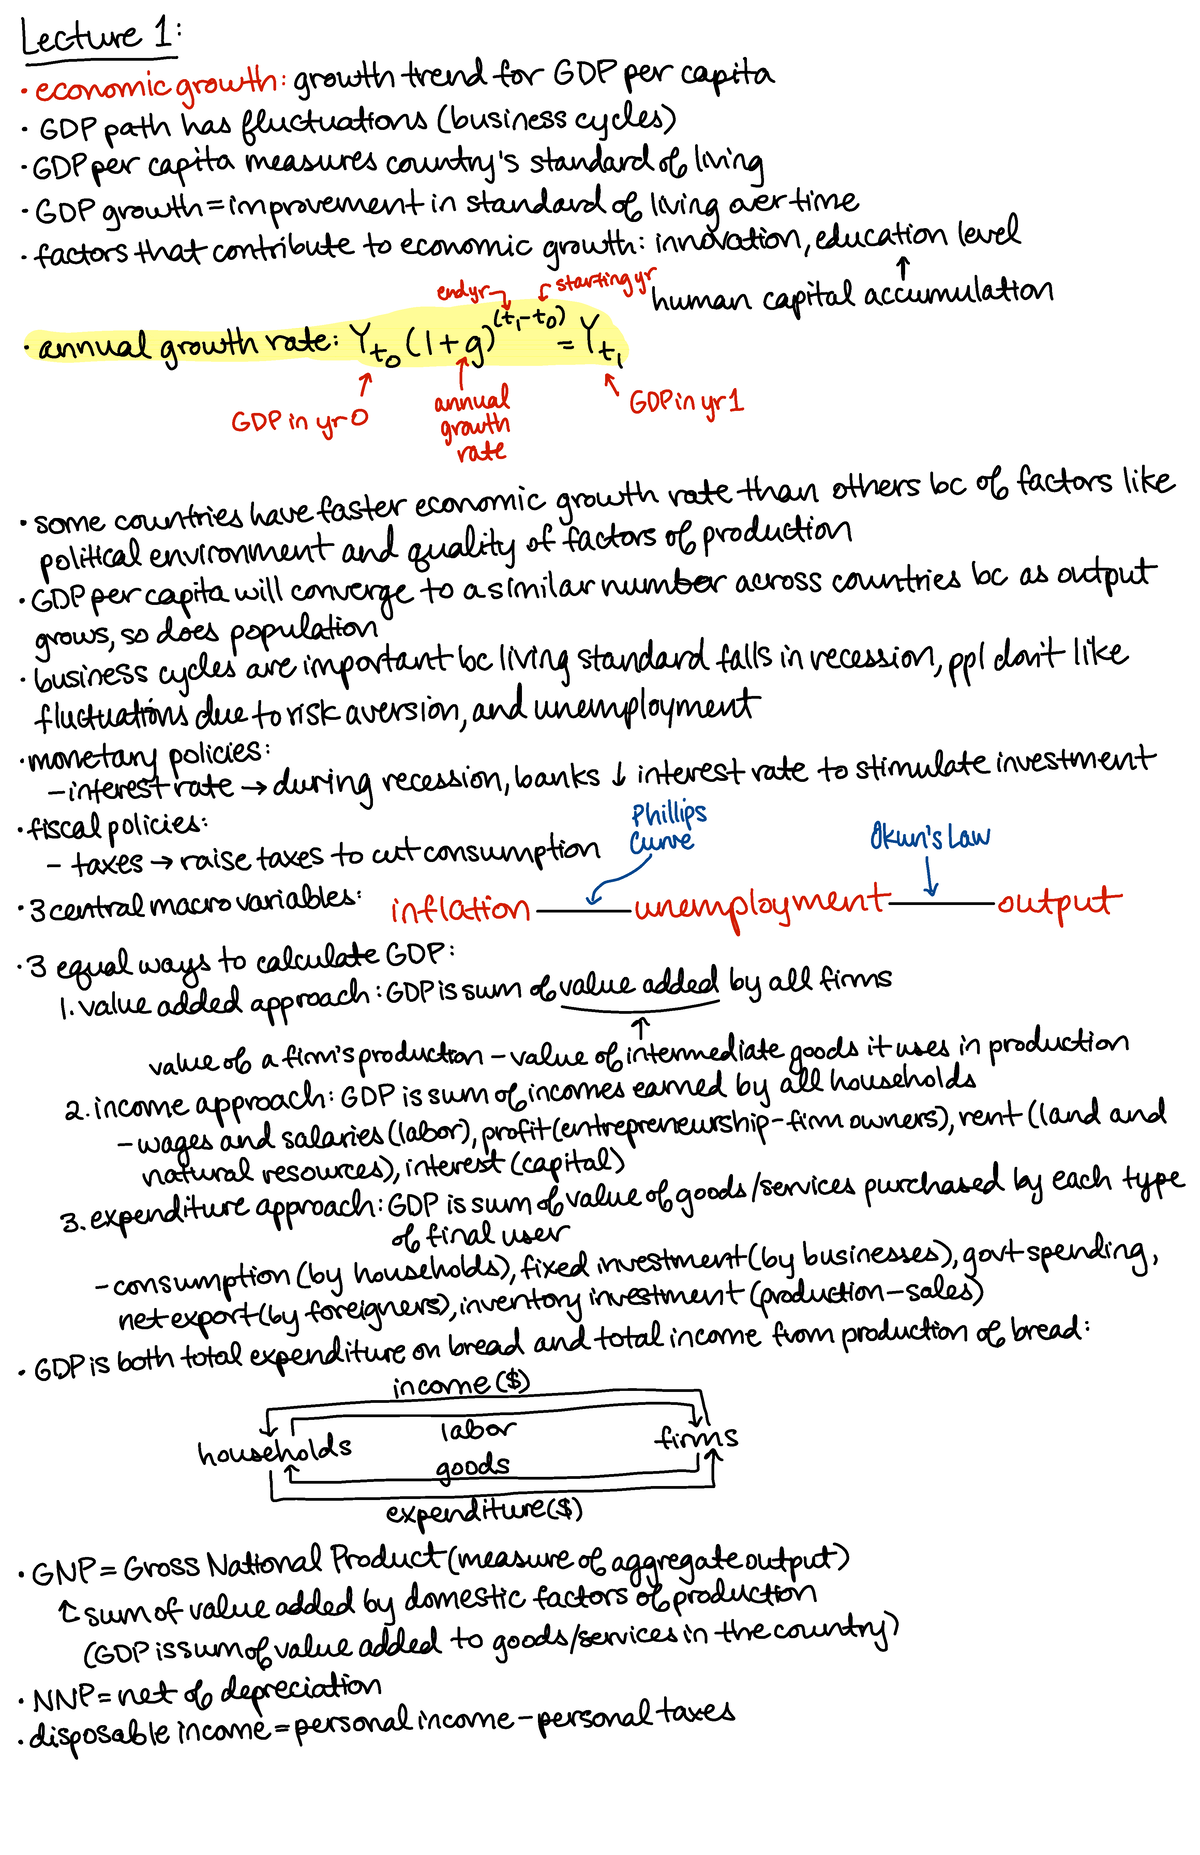 Lecture 1:
· economic growth: growth trend for GDP per capita
· GDP path has fluctuations (business cycles)
· GDP per capita measures country's standard of living
· GDP growth = improvement in standard of living over time
· factors that contribute to economic growth: innovation, education level
↑
human capital accumulation
end yr starting yr
· annual growth rate: Y_t₀ (1+g)^(t₁-t₀) = Y_t₁
GDP in yr 0
annual growth rate
GDP in yr 1
· some countries have faster economic growth rate than others bc of factors like
political environment and quality of factors of production
· GDP per capita will converge to a similar number across countries bc as output
grows, so does population
· business cycles are important bc living standard falls in recession, ppl don't like
fluctuations due to risk aversion, and unemployment
· monetary policies:
- interest rate → during recession, banks ↓ interest rate to stimulate investment
· fiscal policies:
- taxes → raise taxes to cut consumption
Phillips Curve
Okun's Law
· 3 central macro variables: inflation — unemployment — output
· 3 equal ways to calculate GDP:
1. value added approach: GDP is sum of value added by all firms
↑
value of a firm's production - value of intermediate goods it uses in production
2. income approach: GDP is sum of incomes earned by all households
- wages and salaries (labor), profit (entrepreneurship-firm owners), rent (land and
natural resources), interest (capital)
3. expenditure approach: GDP is sum of value of goods/services purchased by each type
of final user
- consumption (by households), fixed investment (by businesses), govt spending,
net export (by foreigners), inventory investment (production-sales)
· GDP is both total expenditure on bread and total income from production of bread:
income ($)
labor
households firms
goods
expenditure ($)
· GNP = Gross National Product (measure of aggregate output)
↑ sum of value added by domestic factors of production
(GDP is sum of value added to goods/services in the country)
· NNP = net of depreciation
· disposable income = personal income - personal taxes